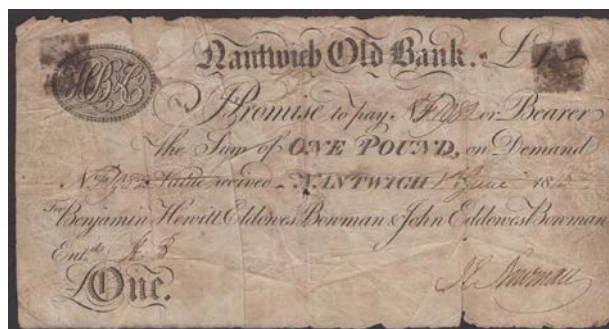 Nantwich Old Bank. £1
I Promise to pay or Bearer
the Sum of ONE POUND, on Demand
Value received. NANTWICH 1 June 18
For Benjamin Hewitt Eddowes Bowman & John Eddowes Bowman
Ent.d
£One.
J E Bowman